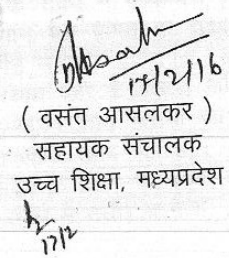 17/2/16
( वसंत आसलकर )
सहायक संचालक
उच्च शिक्षा, मध्यप्रदेश
17/2